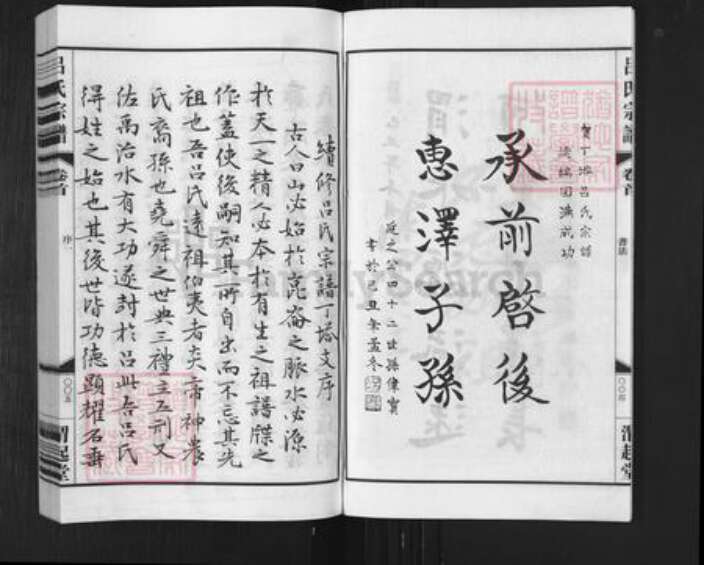 呂氏宗譜
卷首
書法
〇〇四
渭起堂
賀丁塔呂氏宗譜
續編圓滿成功
承前啓後
惠澤子孫
庭之公四十二世孫偉寶
書於己丑年孟冬
續修呂氏宗譜丁塔文序
古人曰山必始於崑崙之脈水必源
於天一之精人必本於有生之祖譜牒之
作蓋使後嗣知其所自出而不忘其先
祖也吾呂氏遠祖伯夷者炎帝神農
氏裔孫也堯舜之世典三禮主五刑又
佐禹治水有大功遂封於呂此吾呂氏
得姓之始也其後世皆功德顯耀名垂
呂氏宗譜
卷首
序一
〇〇五
渭起堂
FamilySearch